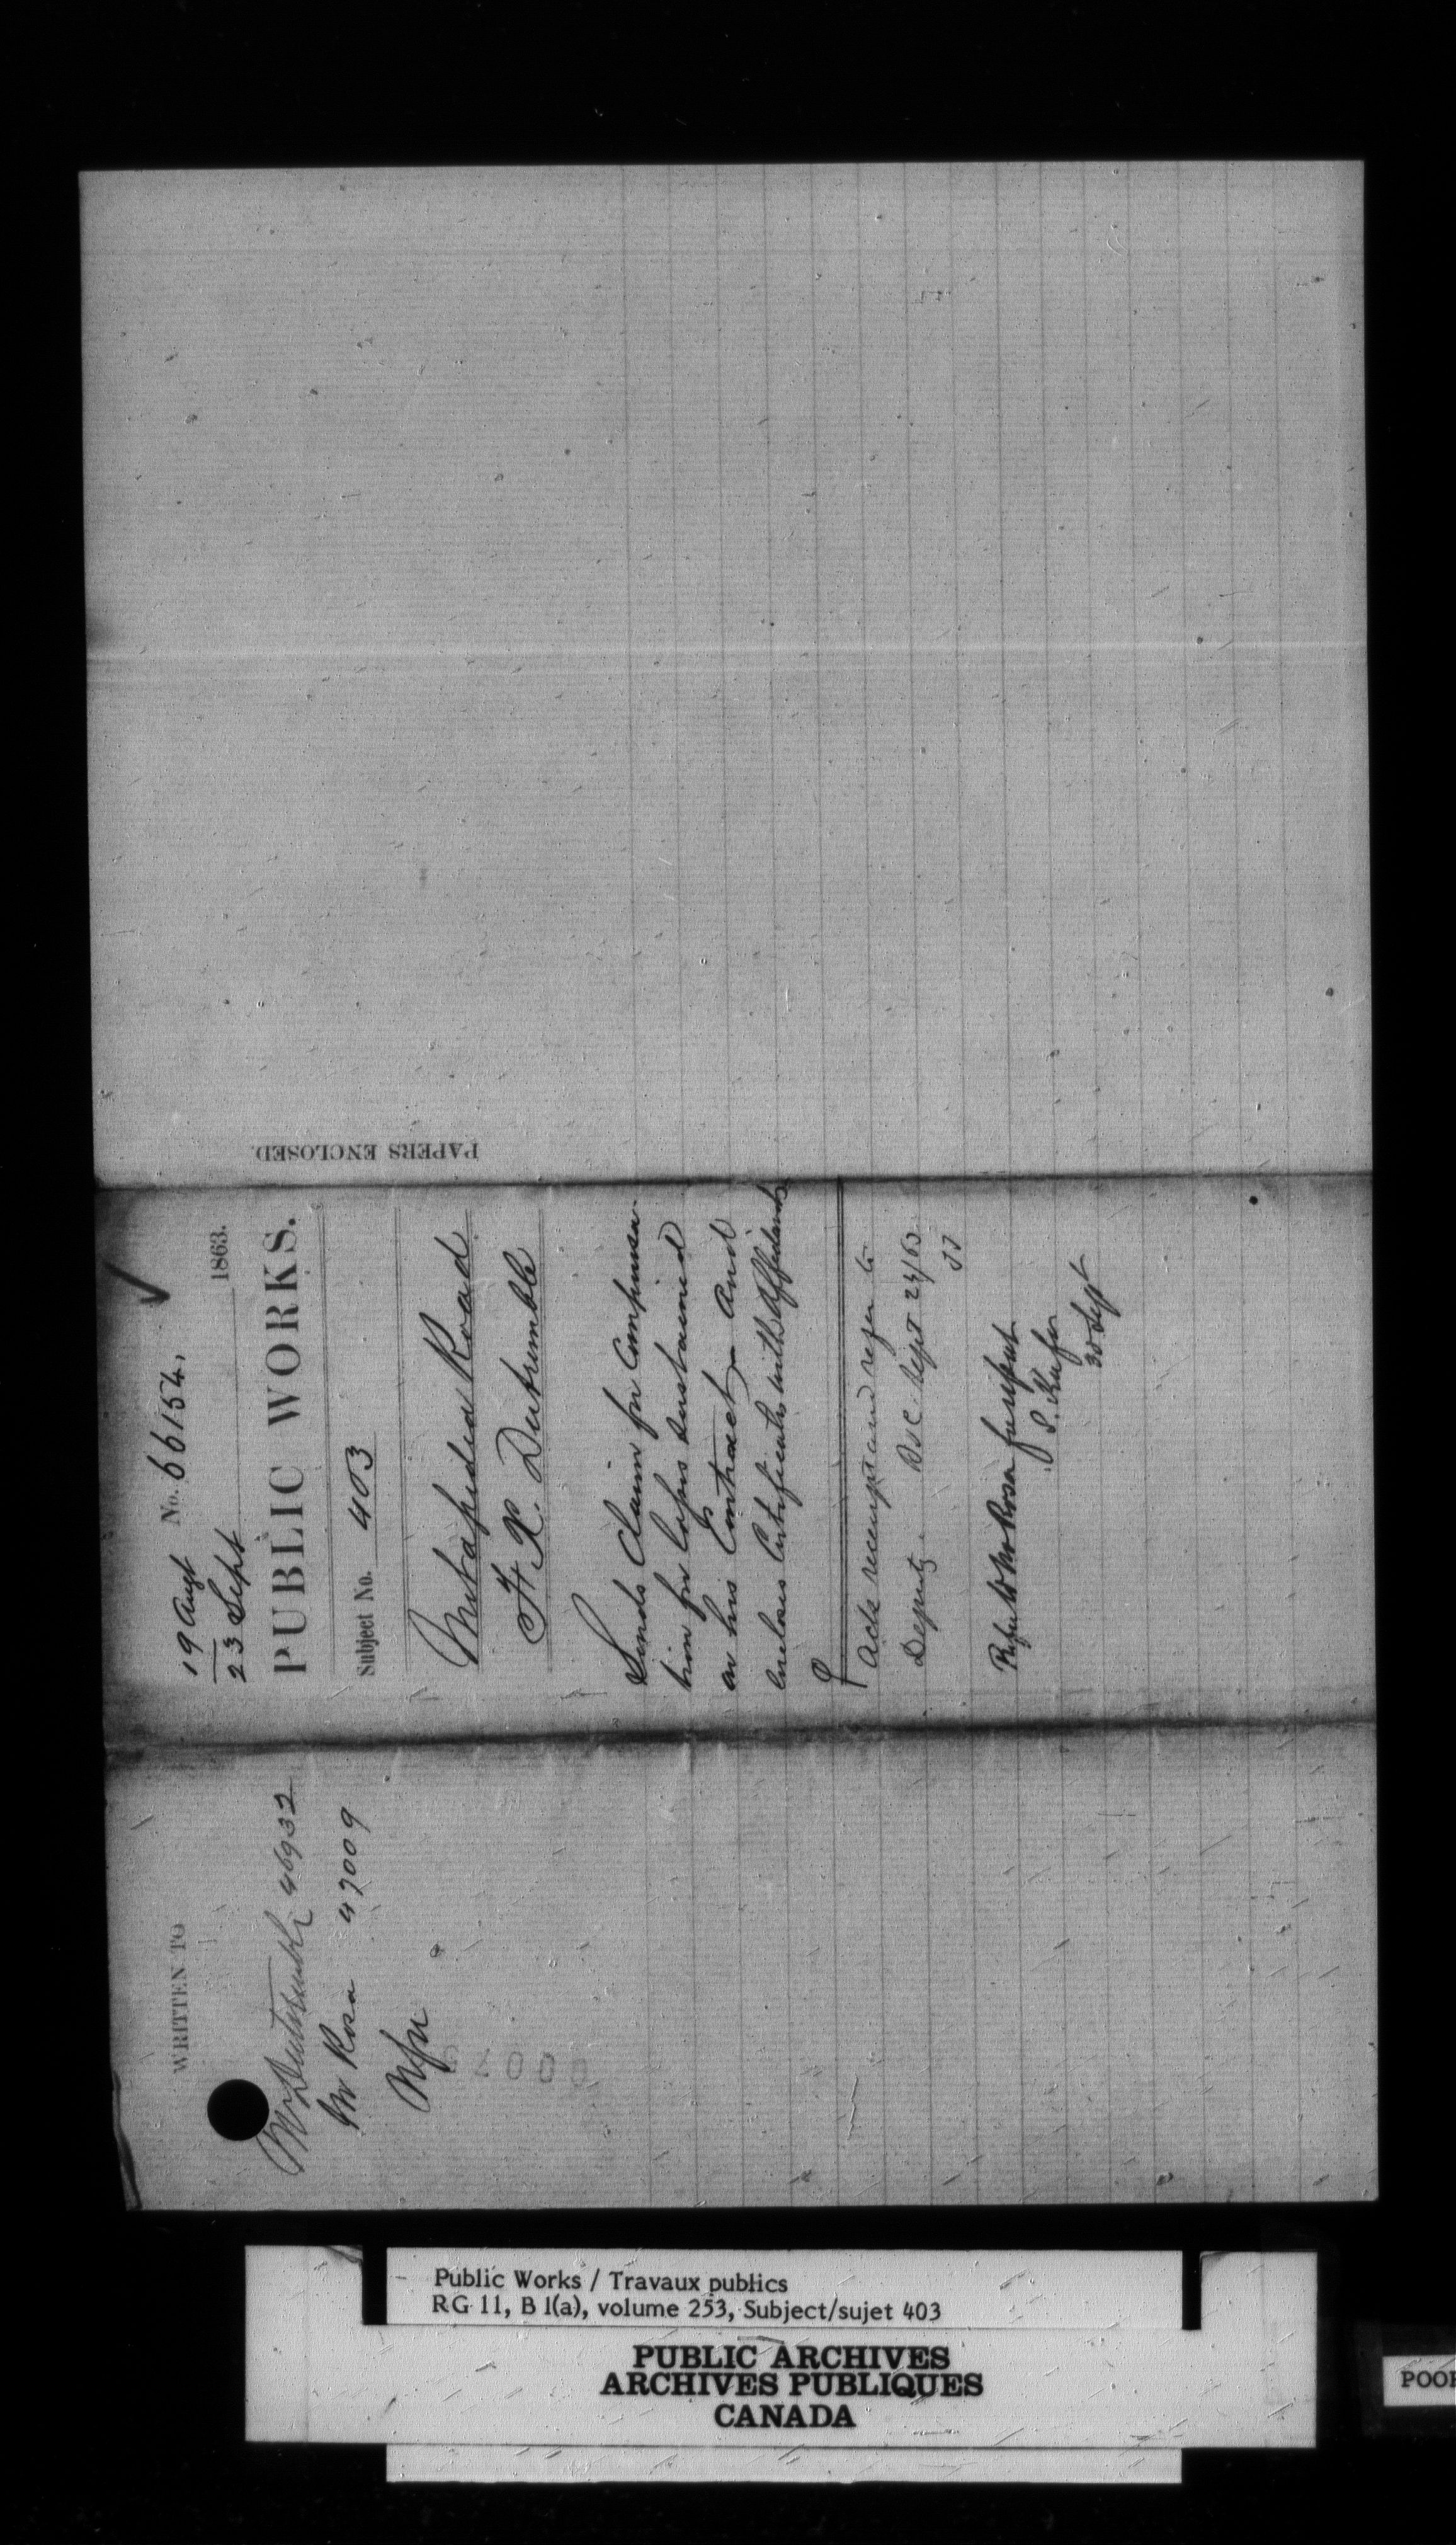 WRITTEN TO
Mr Dutremble 46932
Mr Rosa 47009
19 Augt No. 66154.
23 Sept 1863.
PUBLIC WORKS.
Subject No. 403
Metapedia Road
F. X. Dutremble
Sends Claim for Compensa-
tion for losses sustained
on his Contract - and
encloses Certificates with Affidavits
Ack receipt and refer to
Deputy Sept 24/63
JJ
Refer to Mr Rosa for report
30 Sept
PAPERS ENCLOSED.
Public Works / Travaux publics
RG 11, B 1(a), volume 253, Subject/sujet 403
PUBLIC ARCHIVES
ARCHIVES PUBLIQUES
CANADA
POOR